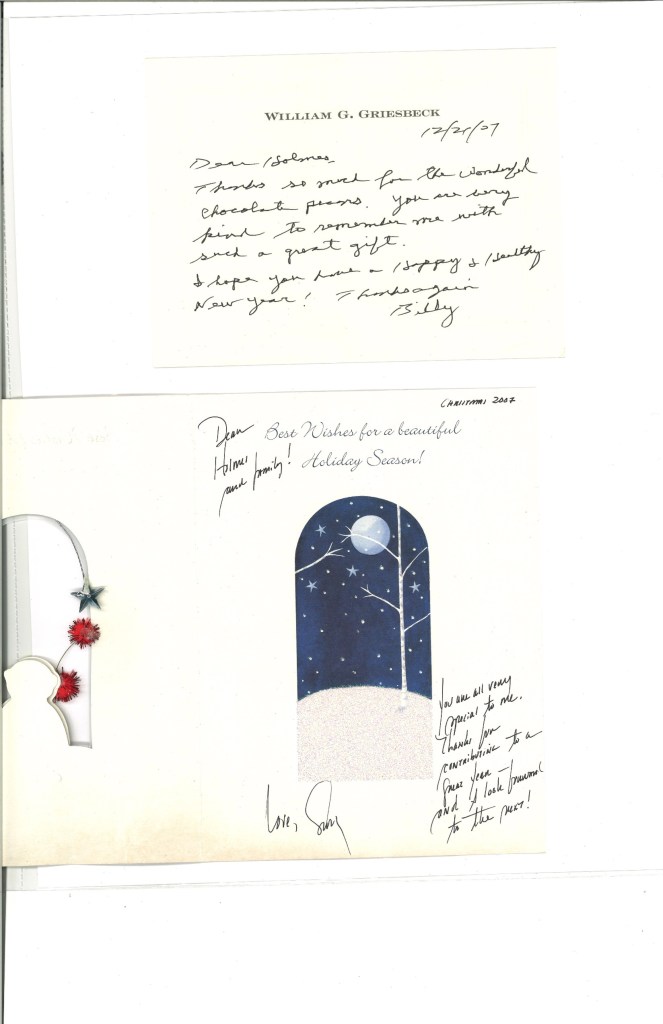 WILLIAM G. GRIESBECK
12/21/07
Dear Holmes,
Thanks so much for the wonderful
chocolate pecans. You are very
kind to remember me with
such a great gift.
I hope you have a Happy & Healthy
New Year! Thanks again
Billy
CHRISTMAS 2007
Dear
Holmes
and family!
Best Wishes for a beautiful
Holiday Season!
You are all very
special to me.
Thanks for
contributing to a
great year —
and I look forward
to the next!
Love,